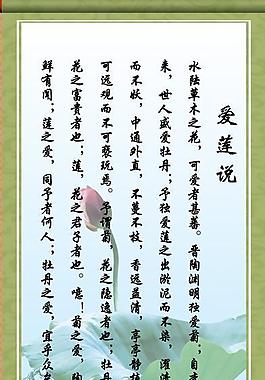 爱莲说
水陆草木之花，可爱者甚蕃。晋陶渊明独爱菊；自李
来，世人盛爱牡丹；予独爱莲之出淤泥而不染，濯清
而不妖，中通外直，不蔓不枝，香远益清，亭亭静植
可远观而不可亵玩焉。予谓菊，花之隐逸者也；牡丹
花之富贵者也；莲，花之君子者也。噫！菊之爱，陶
鲜有闻；莲之爱，同予者何人；牡丹之爱，宜乎众